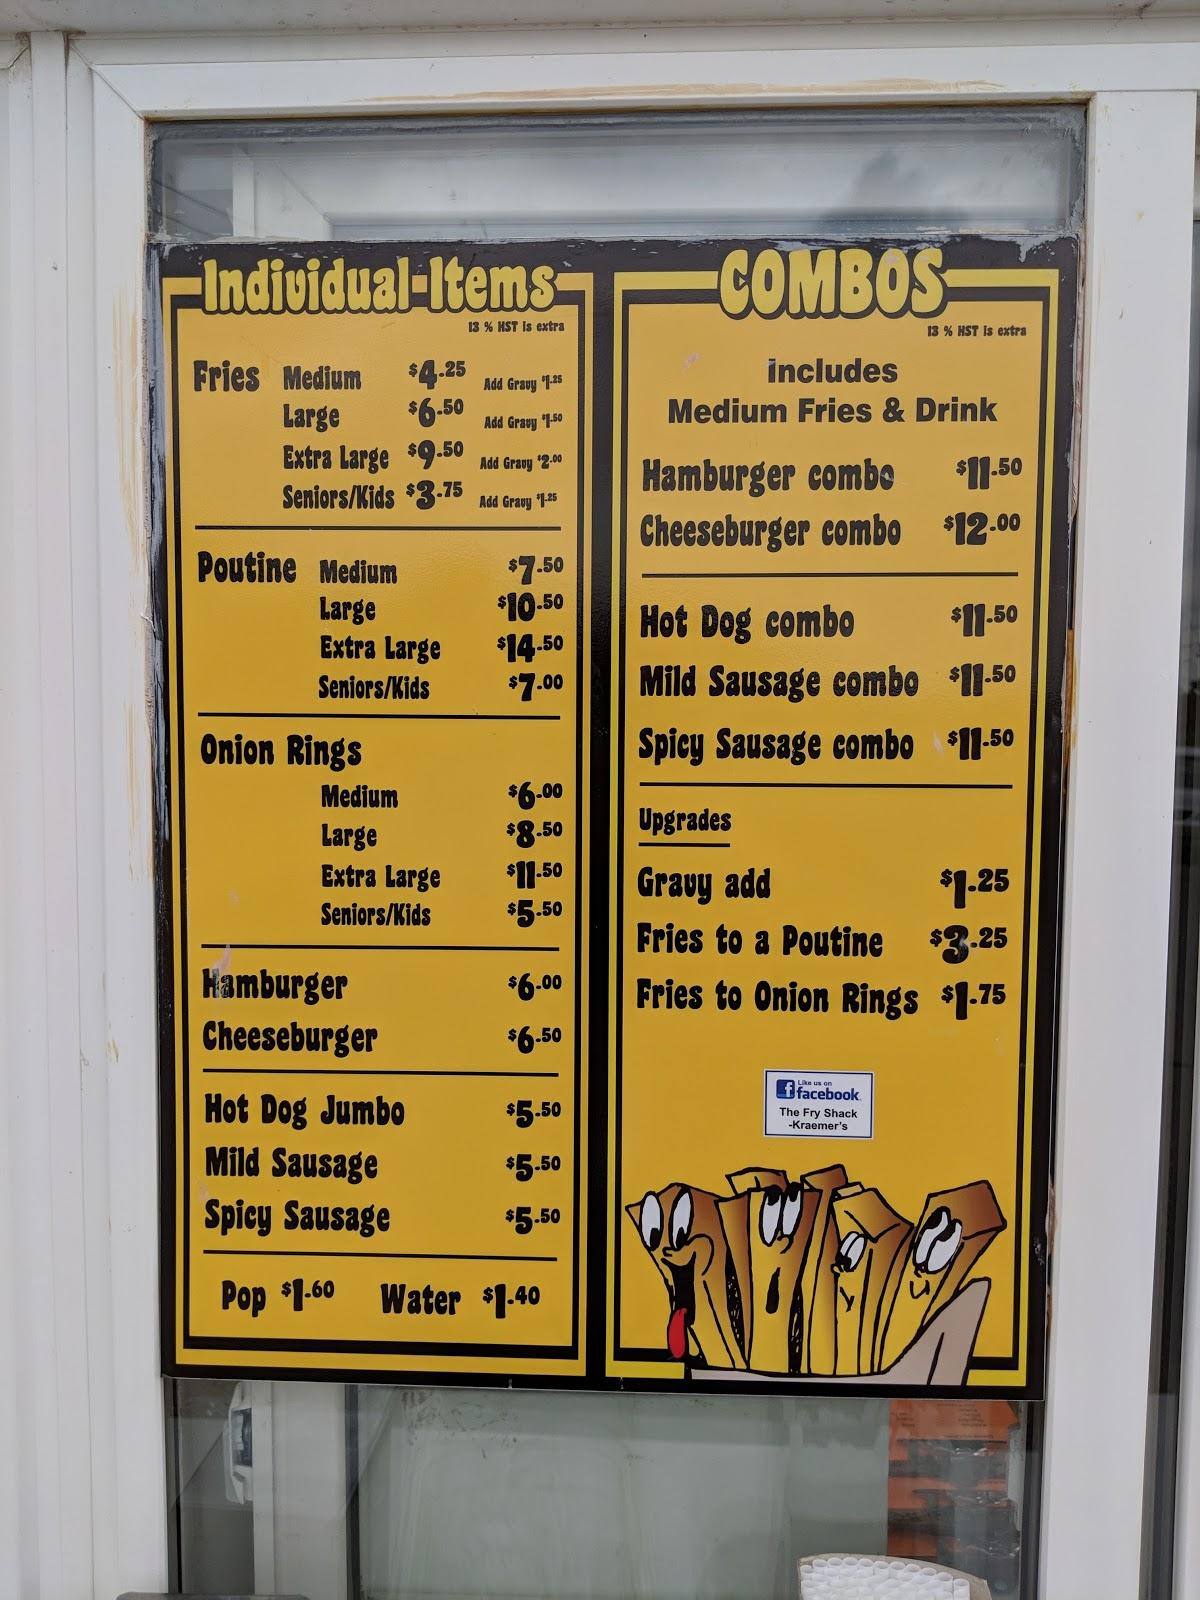 Individual Items
13 % HST is extra
Fries Medium $4.25 Add Gravy $1.25
Large $6.50 Add Gravy $1.50
Extra Large $9.50 Add Gravy $2.00
Seniors/Kids $3.75 Add Gravy $1.25
Poutine Medium $7.50
Large $10.50
Extra Large $14.50
Seniors/Kids $7.00
Onion Rings
Medium $6.00
Large $8.50
Extra Large $11.50
Seniors/Kids $5.50
Hamburger $6.00
Cheeseburger $6.50
Hot Dog Jumbo $5.50
Mild Sausage $5.50
Spicy Sausage $5.50
Pop $1.60 Water $1.40
COMBOS
13 % HST is extra
includes
Medium Fries & Drink
Hamburger combo $11.50
Cheeseburger combo $12.00
Hot Dog combo $11.50
Mild Sausage combo $11.50
Spicy Sausage combo $11.50
Upgrades
Gravy add $1.25
Fries to a Poutine $3.25
Fries to Onion Rings $1.75
Like us on
facebook
The Fry Shack
-Kraemer's